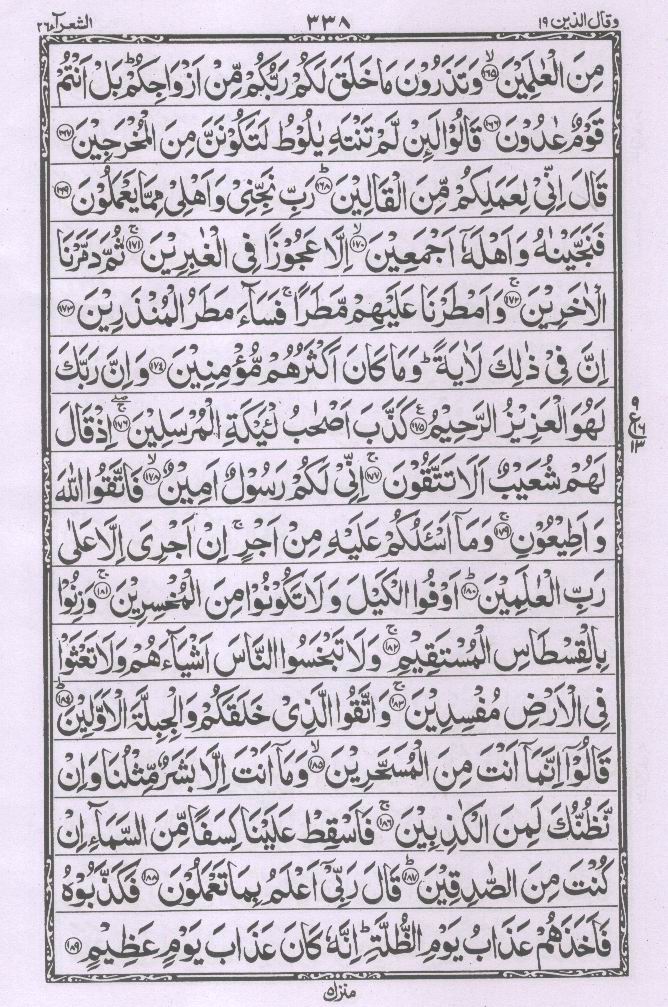 وقال الذين ١٩ ٣٣٨ الشعرآء ٢٦
مِنَ الْعٰلَمِيْنَ ﴿۱۶۵﴾ۙ وَتَذَرُوْنَ مَا خَلَقَ لَكُمْ رَبُّكُمْ مِّنْ اَزْوَاجِكُمْ ؕ بَلْ اَنْتُمْ
قَوْمٌ عٰدُوْنَ ﴿۱۶۶﴾ قَالُوْا لَىِٕنْ لَّمْ تَنْتَهِ يٰلُوْطُ لَتَكُوْنَنَّ مِنَ الْمُخْرَجِيْنَ ﴿۱۶۷﴾
قَالَ اِنِّىْ لِعَمَلِكُمْ مِّنَ الْقَالِيْنَ ﴿۱۶۸﴾ؕ رَبِّ نَجِّنِىْ وَاَهْلِىْ مِمَّا يَعْمَلُوْنَ ﴿۱۶۹﴾
فَنَجَّيْنٰهُ وَاَهْلَهٗۤ اَجْمَعِيْنَ ﴿۱۷۰﴾ۙ اِلَّا عَجُوْزًا فِى الْغٰبِرِيْنَ ﴿۱۷۱﴾ۚ ثُمَّ دَمَّرْنَا
الْاٰخَرِيْنَ ﴿۱۷۲﴾ۚ وَاَمْطَرْنَا عَلَيْهِمْ مَّطَرًا ۚ فَسَآءَ مَطَرُ الْمُنْذَرِيْنَ ﴿۱۷۳﴾
اِنَّ فِىْ ذٰلِكَ لَاٰيَةً ؕ وَمَا كَانَ اَكْثَرُهُمْ مُّؤْمِنِيْنَ ﴿۱۷۴﴾ وَاِنَّ رَبَّكَ
لَهُوَ الْعَزِيْزُ الرَّحِيْمُ ﴿۱۷۵﴾ كَذَّبَ اَصْحٰبُ لْئَيْكَةِ الْمُرْسَلِيْنَ ﴿۱۷۶﴾ۚۖ اِذْ قَالَ
لَهُمْ شُعَيْبٌ اَلَا تَتَّقُوْنَ ﴿۱۷۷﴾ۚ اِنِّىْ لَكُمْ رَسُوْلٌ اَمِيْنٌ ﴿۱۷۸﴾ۙ فَاتَّقُوا اللّٰهَ
وَاَطِيْعُوْنِ ﴿۱۷۹﴾ۚ وَمَاۤ اَسْـَٔلُكُمْ عَلَيْهِ مِنْ اَجْرٍ ۚ اِنْ اَجْرِىَ اِلَّا عَلٰى
رَبِّ الْعٰلَمِيْنَ ﴿۱۸۰﴾ؕ اَوْفُوا الْكَيْلَ وَلَا تَكُوْنُوْا مِنَ الْمُخْسِرِيْنَ ﴿۱۸۱﴾ۚ وَزِنُوْا
بِالْقِسْطَاسِ الْمُسْتَقِيْمِ ﴿۱۸۲﴾ۚ وَلَا تَبْخَسُوا النَّاسَ اَشْيَآءَهُمْ وَلَا تَعْثَوْا
فِى الْاَرْضِ مُفْسِدِيْنَ ﴿۱۸۳﴾ۚ وَاتَّقُوا الَّذِىْ خَلَقَكُمْ وَالْجِبِلَّةَ الْاَوَّلِيْنَ ﴿۱۸۴﴾ؕ
قَالُوْۤا اِنَّمَاۤ اَنْتَ مِنَ الْمُسَحَّرِيْنَ ﴿۱۸۵﴾ۙ وَمَاۤ اَنْتَ اِلَّا بَشَرٌ مِّثْلُنَا وَاِنْ
نَّظُنُّكَ لَمِنَ الْكٰذِبِيْنَ ﴿۱۸۶﴾ۚ فَاَسْقِطْ عَلَيْنَا كِسَفًا مِّنَ السَّمَآءِ اِنْ
كُنْتَ مِنَ الصّٰدِقِيْنَ ﴿۱۸۷﴾ؕ قَالَ رَبِّىْۤ اَعْلَمُ بِمَا تَعْمَلُوْنَ ﴿۱۸۸﴾ فَكَذَّبُوْهُ
فَاَخَذَهُمْ عَذَابُ يَوْمِ الظُّلَّةِ ؕ اِنَّهٗ كَانَ عَذَابَ يَوْمٍ عَظِيْمٍ ﴿۱۸۹﴾
٩
ع ١٦
١٣
منزل ٥